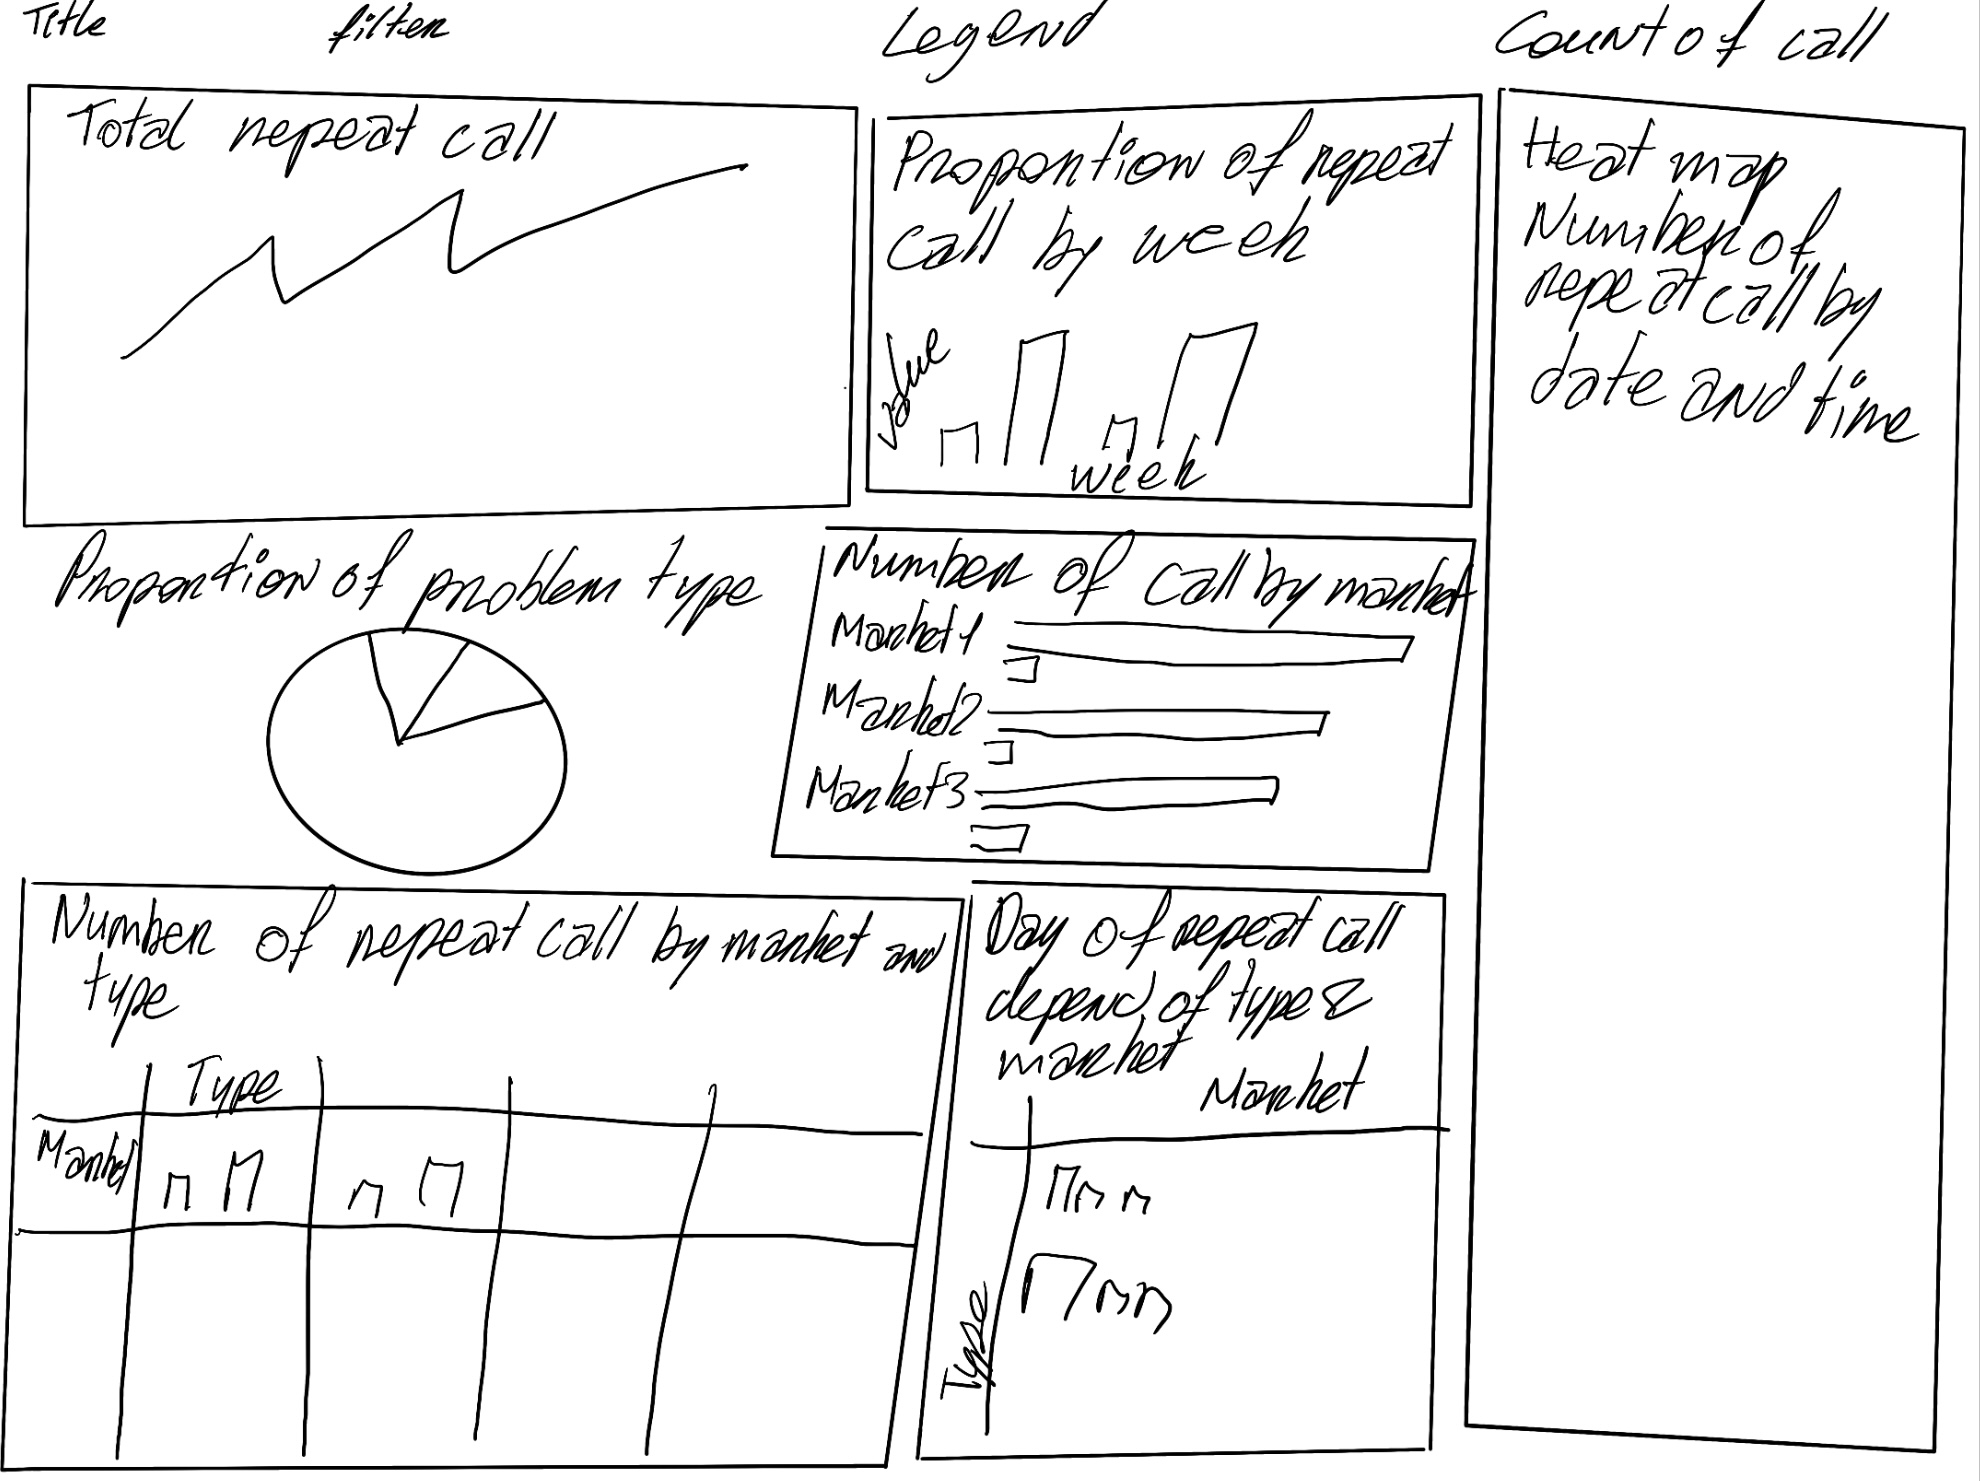 Title filter Legend Count of call
Total repeat call
Proportion of repeat
call by week
value
week
Heat map
Number of
repeat call by
date and time
Proportion of problem type
Number of call by market
Market 1
Market 2
Market 3
Number of repeat call by market and
type
Type
Market
Day of repeat call
depend of type &
market
Market
Type